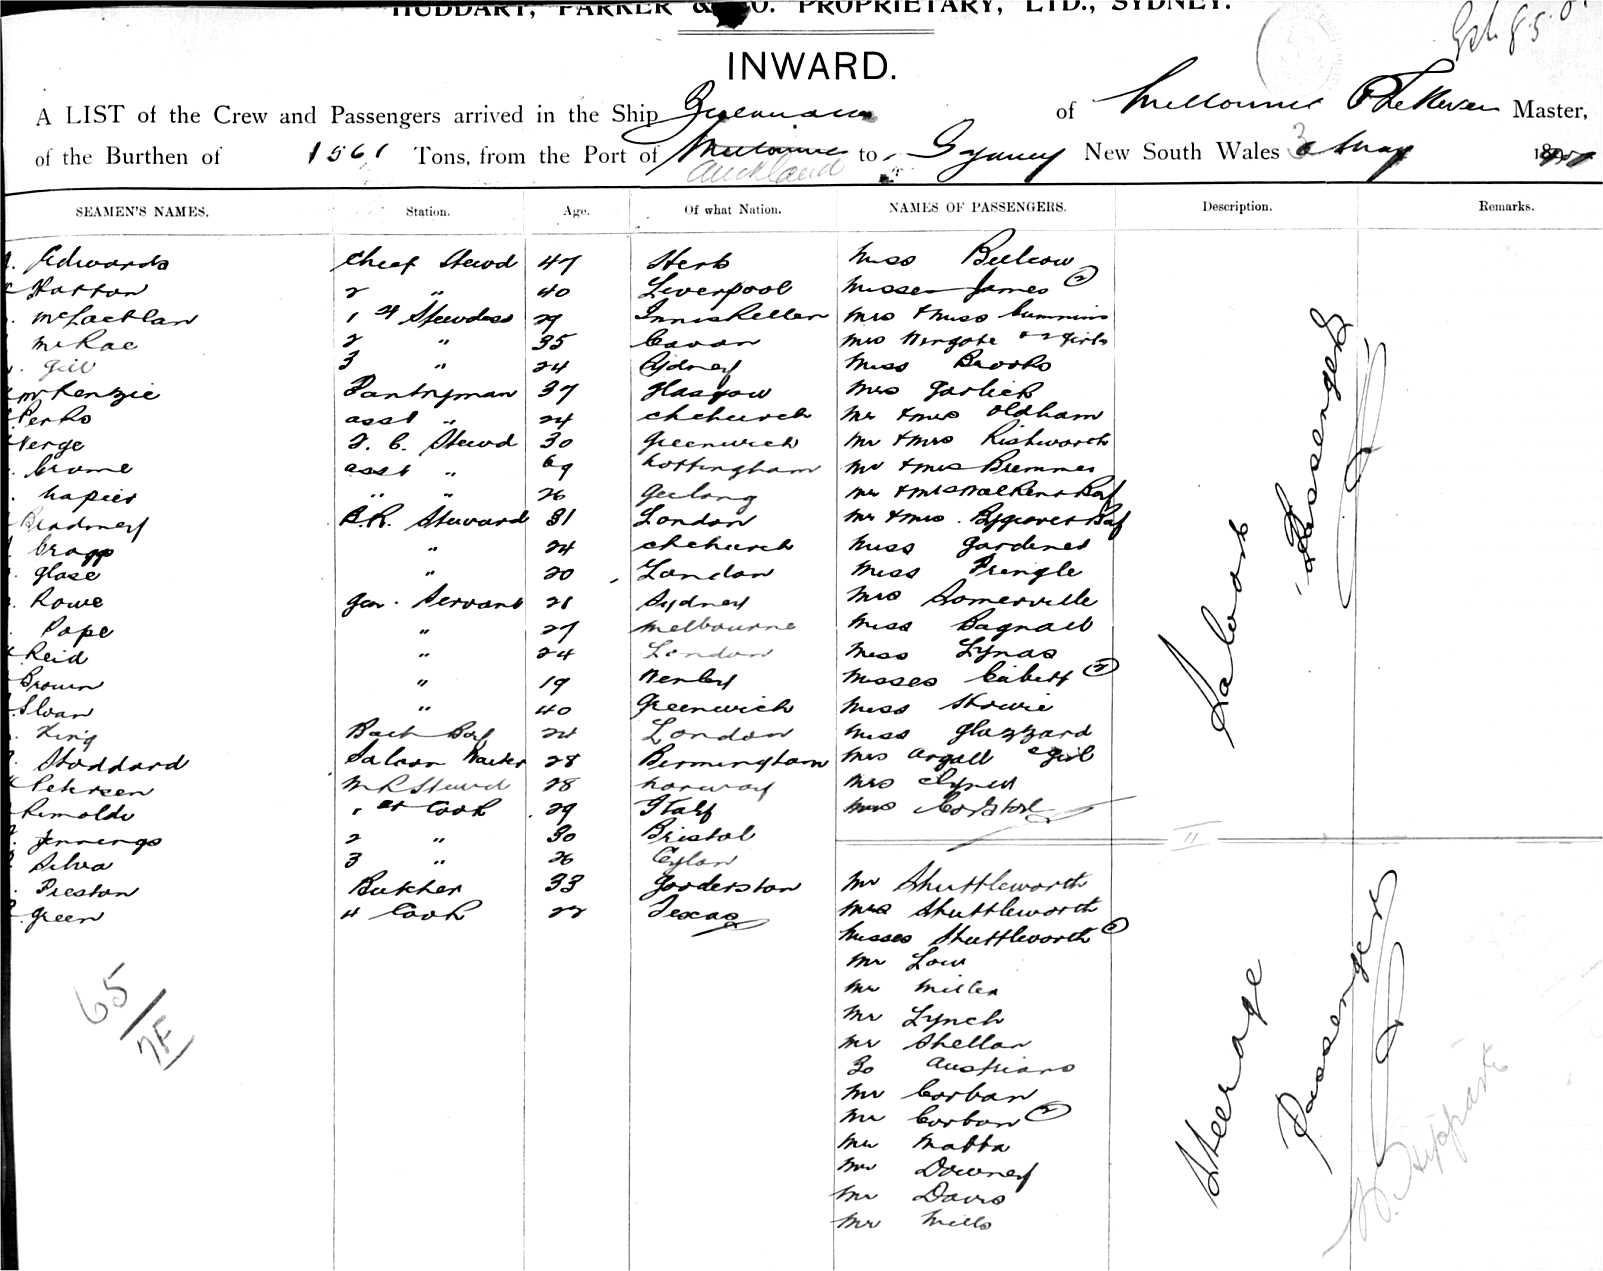 HUDDART, PARKER & CO. PROPRIETARY, LTD., SYDNEY.
INWARD.
A LIST of the Crew and Passengers arrived in the Ship Zealandia of Melbourne Master,
of the Burthen of 1561 Tons, from the Port of Melbourne Auckland to Sydney New South Wales 3 May
SEAMEN'S NAMES. Station. Age. Of what Nation. NAMES OF PASSENGERS. Description. Remarks.
Edwards Chief Stewd 47 Herts Miss
Hatton 2 " 40 Liverpool Misses James (2)
McLachlan 1st Stewdess 29 Inniskellen Mrs & Miss Cummins
McRae 2 " 35 Cavan Mrs & 2 Girls
Gill 3 " 24 Sydney Miss Brooks
McKenzie Pantryman 37 Glasgow Mrs Garlick
Perks asst " 24 Chchurch Mr & Mrs Oldham
Verge F. C. Stewd 30 Greenwich Mr & Mrs Rishworth
Crome asst " 69 Nottingham Mr & Mrs Bremner
Napier " " 26 Geelong Mr & Mrs Walker & Baf
Bradney B.R. Steward 31 London Mr & Mrs Bygraves Baf
Cragg " 24 Chchurch Miss Gardener
Glase " 20 London Miss Pringle
Rowe Gen. Servant 21 Sydney Mrs Somerville
Pape " 27 Melbourne Miss Bagnall
Reid " 24 London Miss Lynas
Brown " 19 Misses (2)
Sloan " 40 Greenwich Miss Showie
King Back Boy 24 London Miss Glazzard
Stoddard Saloon Waiter 28 Birmingham Mrs Argall & Girl
Petersen M R Stewd 28 Norway Mrs
Rimoldi 1st Cook 29 Italy Mrs
Jennings 2 " 30 Bristol
Silva 3 " 26 Ceylon
Preston Butcher 33 Gorderston Mr Shuttleworth
Green 4 Cook 22 Texas Mrs Shuttleworth
Misses Shuttleworth (2)
Mr Low
Mr Miller
Mr Lynch
Mr Shellar
30 Austrians
Mr Corban
Mr Corban (2)
Mr Matta
Mr Downey
Mr Davis
Mr Mills
Saloon Passengers
Steerage Passengers
65/7F